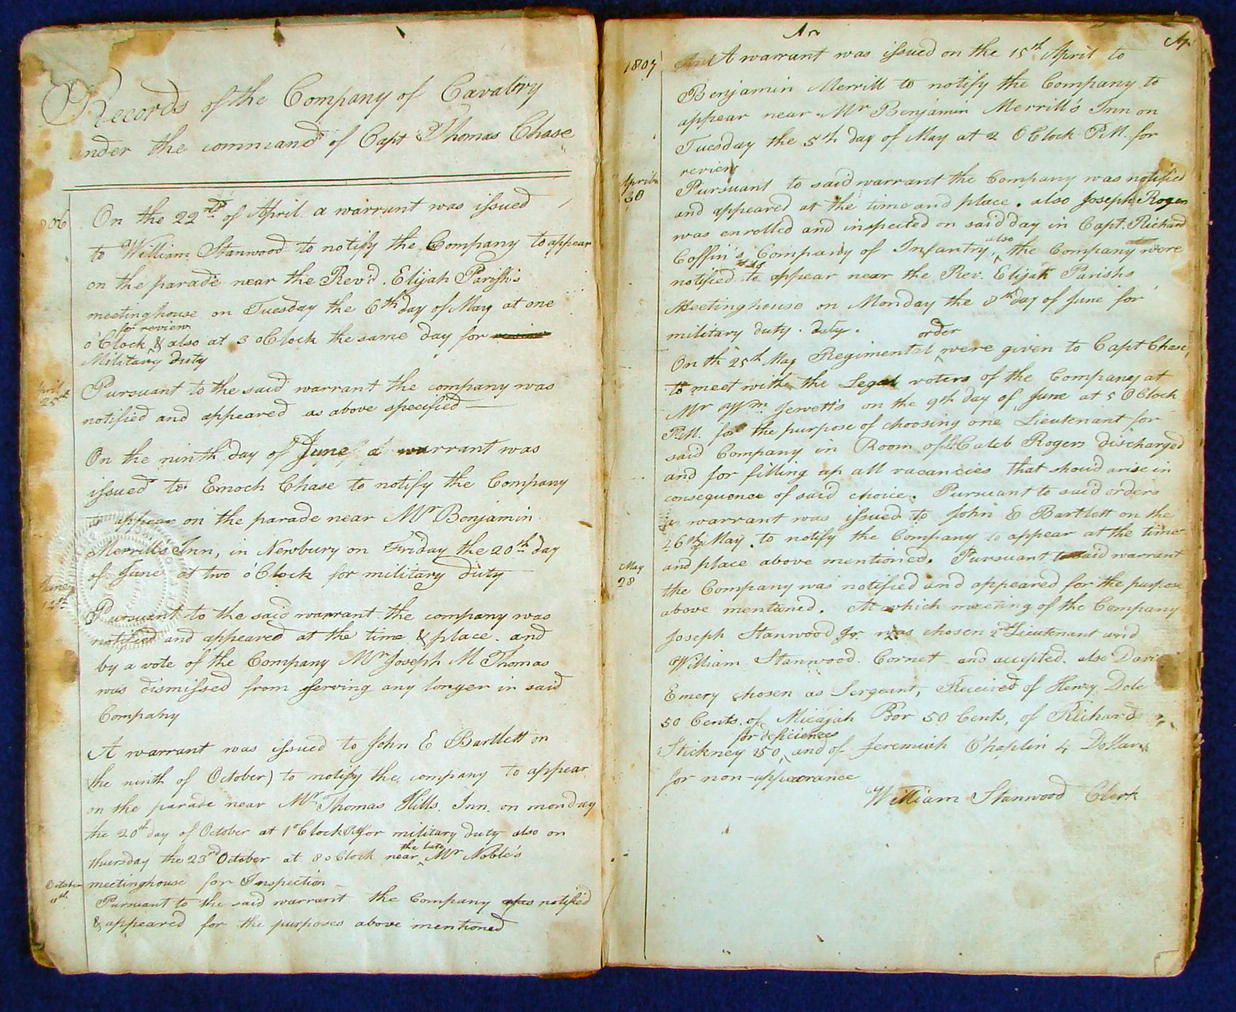 Records of the Company of Cavalry
under the command of Capt Thomas Chase
1806
On the 22nd of April a warrant was issued
to William Stanwood to notify the Company to appear
on the parade near the Rev'd. Elijah Parish's
meetinghouse on Tuesday the 6th day of May at one
for review
o'Clock & also at 3 oClock the same day for
Military duty
April 25th
Pursuant to the said warrant the company was
notified and appeared as above specified
On the ninth day of June a warrant was
issued to Enoch Chase to notify the Company
to appear on the parade near Mr Benjamin
Merrill's Inn, in Newbury on Friday the 20th day
of June at two o'Clock for military duty
June 12th
Pursuant to the said warrant the company was
notified and appeared at the time & place. and
by a vote of the Company Mr Joseph M Thomas
was dismissed from serving any longer in said
Company
A warrant was issued to John E Bartlett on
the ninth of October) to notify the company to appear
on the parade near Mr Thomas Hills Inn on monday
the 20th day of October at 1 oClock for military duty also on
thursday the 23rd October at 8 oClock near the late Mr Noble's
meetinghouse for Inspection
October
Pursuant to the said warrant the Company was notified
& appeared for the purposes above mentioned
Ar
Ar
1807
A warrant was issued on the 15th April to
Benjamin Merrill to notify the Company to
appear near Mr Benjamin Merrill's Inn on
Tuesday the 5th day of May at 2 OClock P.M. for
review
April 20
Pursuant to said warrant the Company was notified
and appeared at the time and place. also Joseph Roger
was enrolled and inspected on said day in Capt. Richard
Coffin's Company of Infantry, also the Company were
notified to appear near the Rev. Elijah Parishs
Meetinghouse on Monday the 8th day of June for
military duty. Duly.
order
On th 25th May Regimental were given to Capt Chase,
to meet with the Legal voters of the Company at
Mr Wm. Jewett's on the 9th day of June at 5 OClock
P.M. for the purpose of choosing one Lieutenant for
said Company in Room of Lt Caleb Rogers discharged
and for filling up all vacancies that shoud arise in
consequence of said choice. Pursuant to said orders
a warrant was issued to John E Bartlett on the
26th May to notify the Company to appear at the time
and place above mentioned. Pursuant to said warrant
May 28
the Company was notified and appeared for the purpose
above mentioned. At which meeting of the Company
Joseph Stanwood Jr. was chosen 2d Lieutenant and
William Stanwood Cornet and accepted. also David
Emery chosen as Sergeant, Received of Henry Dole
50 Cents, of Micajah Poor 50 Cents, of Richard
for deficiences
Stickney 150, and of Jeremiah Chaplin 4 Dollars
for non-appearance
William Stanwood Clerk